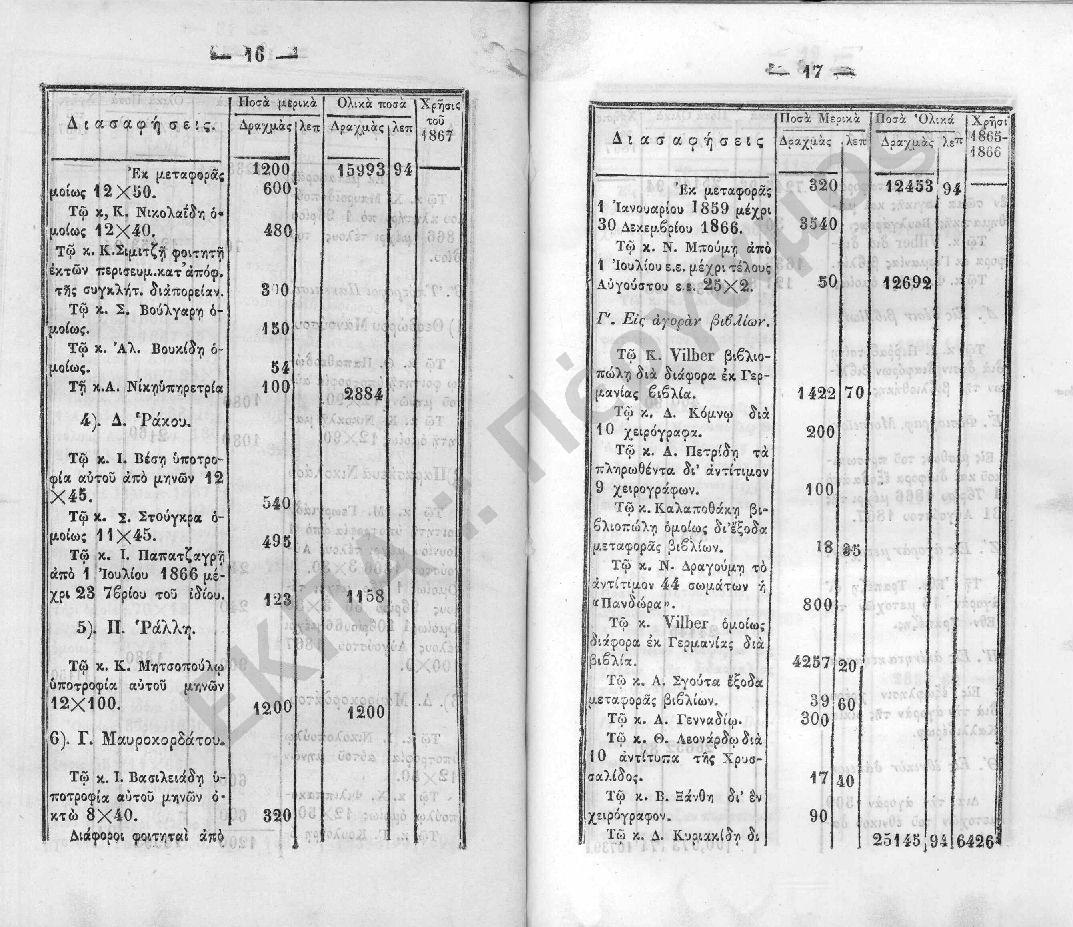 — 16 —
Διασαφήσεις. Ποσὰ μερικὰ Ὁλικὰ ποσὰ Χρῆσις τοῦ 1867
Δραχμὰς λεπ Δραχμὰς λεπ
Ἐκ μεταφορᾶς 1200 15993 94
μοίως 12×50. 600
Τῷ κ, Κ. Νικολαΐδη ὁ-
μοίως 12×40. 480
Τῷ κ. Κ.Σιμιτζῆ φοιτητῇ
ἐκτῶν περισευμ.κατ' ἀπόφ.
τῆς συγκλήτ. διάπορείαν. 300
Τῷ κ. Σ. Βούλγαρη ὁ-
μοίως. 150
Τῷ κ. Ἀλ. Βουκίδη ὁ-
μοίως. 54
Τῇ κ.Α. Νίκηὑπηρετρία 100 2884
4). Δ. Ῥάκου.
Τῷ κ. Ι. Βέση ὑποτρο-
φία αὐτοῦ ἀπὸ μηνῶν 12
×45. 540
Τῷ κ. Σ. Στούγκρα ὁ-
μοίως 11×45. 495
Τῷ κ. Ι. Παπατζαγρῇ
ἀπὸ 1 Ἰουλίου 1866 μέ-
χρι 23 7βρίου τοῦ ἰδίου. 123 1158
5). Π. Ῥάλλη.
Τῷ κ. Κ. Μητσοπούλῳ
ὑποτροφία αὐτοῦ μηνῶν
12×100. 1200 1200
6). Γ. Μαυροκορδάτου.
Τῷ κ. Ι. Βασιλειάδη ὑ-
ποτροφία αὐτοῦ μηνῶν ὀ-
κτὼ 8×40. 320
Διάφοροι φοιτηταὶ ἀπὸ
— 17 —
Διασαφήσεις Ποσὰ Μερικὰ Ποσὰ Ὁλικά Χρῆσι 1865-1866
Δραχμὰς λεπ Δραχμὰς λεπ
Ἐκ μεταφορᾶς 320 12453 94
1 Ἰανουαρίου 1859 μέχρι
30 Δεκεμβρίου 1866. 3540
Τῷ κ. Ν. Μπούμη ἀπὸ
1 Ἰουλίου ε.ε. μέχρι τέλους
Αὐγούστου ε.ε. 25×2. 50 12692
Γ'. Εἰς ἀγορὰν βιβλίων.
Τῷ Κ. Vilber βιβλιο-
πώλη διὰ διάφορα ἐκ Γερ-
μανίας βιβλία. 1422 70
Τῷ κ. Δ. Κόμνῳ διὰ
10 χειρόγραφα. 200
Τῷ κ. Α. Πετρίδη τὰ
πληρωθέντα δι' ἀντίτιμον
9 χειρογράφων. 100
Τῷ κ. Καλαποθάκη βι-
βλιοπώλη ὁμοίως δι'ἔξοδα
μεταφορᾶς βιβλίων. 18 35
Τῷ κ. Ν. Δραγούμη τὸ
ἀντίτιμον 44 σωμάτων ἡ
«Πανδώρα». 800
Τῷ κ. Vilber ὁμοίως
διάφορα ἐκ Γερμανίας διὰ
βιβλία. 4257 20
Τῷ κ. Α. Σγούτα ἔξοδα
μεταφορᾶς βιβλίων. 39 60
Τῷ κ. Α. Γενναδίῳ. 300
Τῷ κ. Θ. Λεονάρδῳ διὰ
10 ἀντίτυπα τῆς Χρυσ-
σαλίδος. 17 40
Τῷ κ. Β. Ξάνθη δι' ἓν
χειρόγραφον. 90
Τῷ κ. Δ. Κυριακίδη δι
25145 94 6426